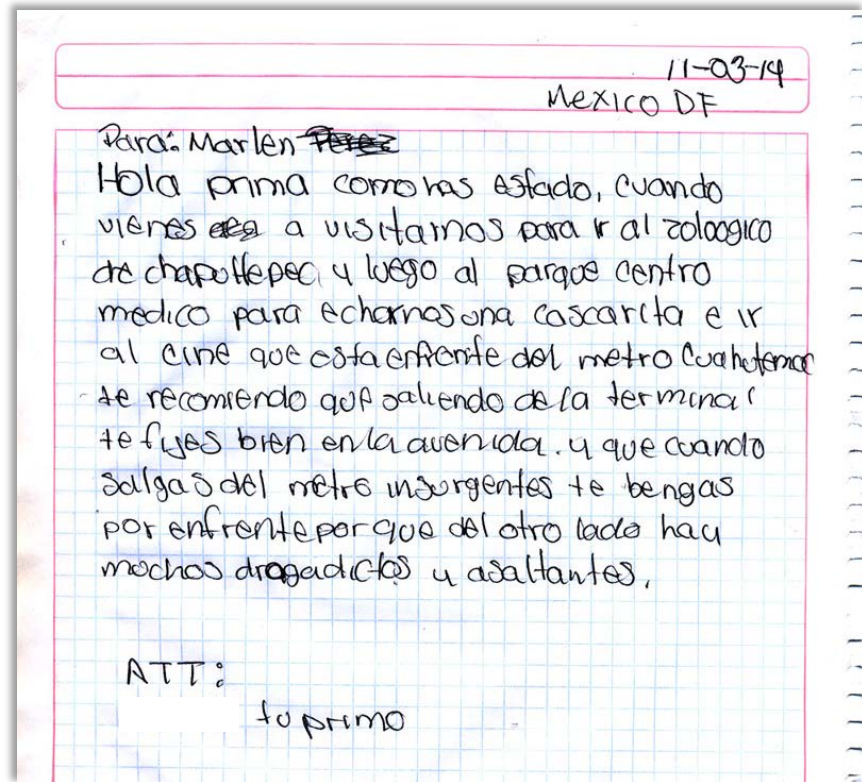 11-03-14
Mexico DF
Para: Marlen Perez
Hola prima como has estado, cuando
vienes a visitarnos para ir al zoloogico
de chapultepec, y luego al parque centro
medico para echarnos una cascarita e ir
al cine que esta enfrente del metro Cuahutemoc
te recomiendo que saliendo de la terminal
te fijes bien en la avenida. y que cuando
salgas del metro insurgentes te bengas
por enfrente por que del otro lado hay
muchos drogadictos y asaltantes.
ATT:
tu primo